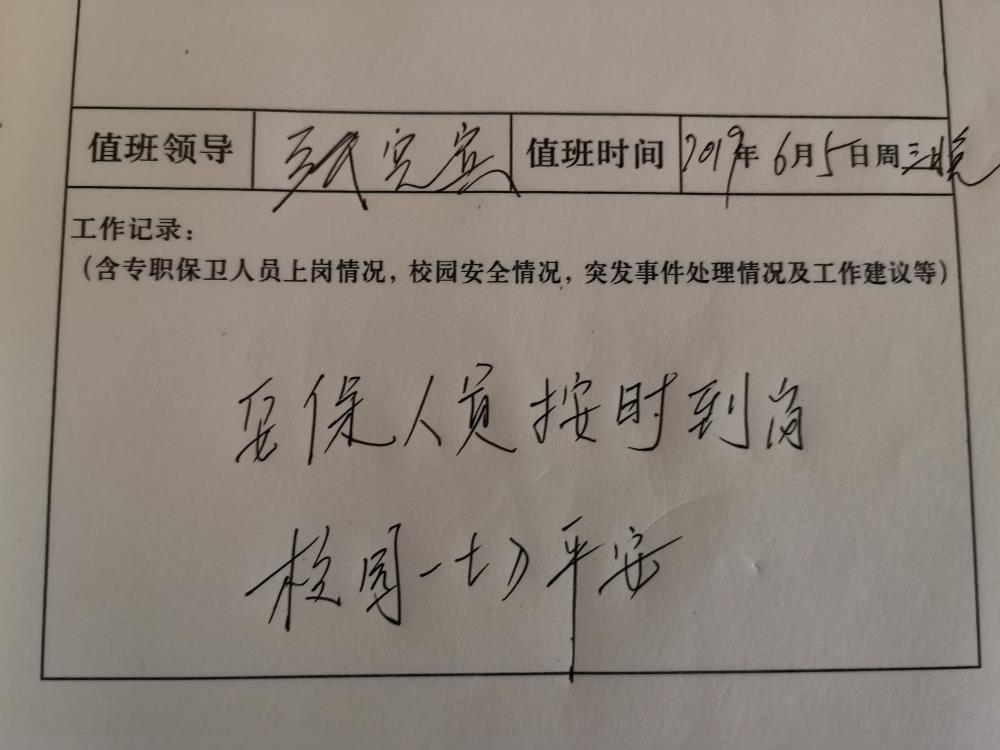 值班领导 值班时间 2019年6月5日周三晚
工作记录：
（含专职保卫人员上岗情况，校园安全情况，突发事件处理情况及工作建议等）
安保人员按时到岗
校园一切平安